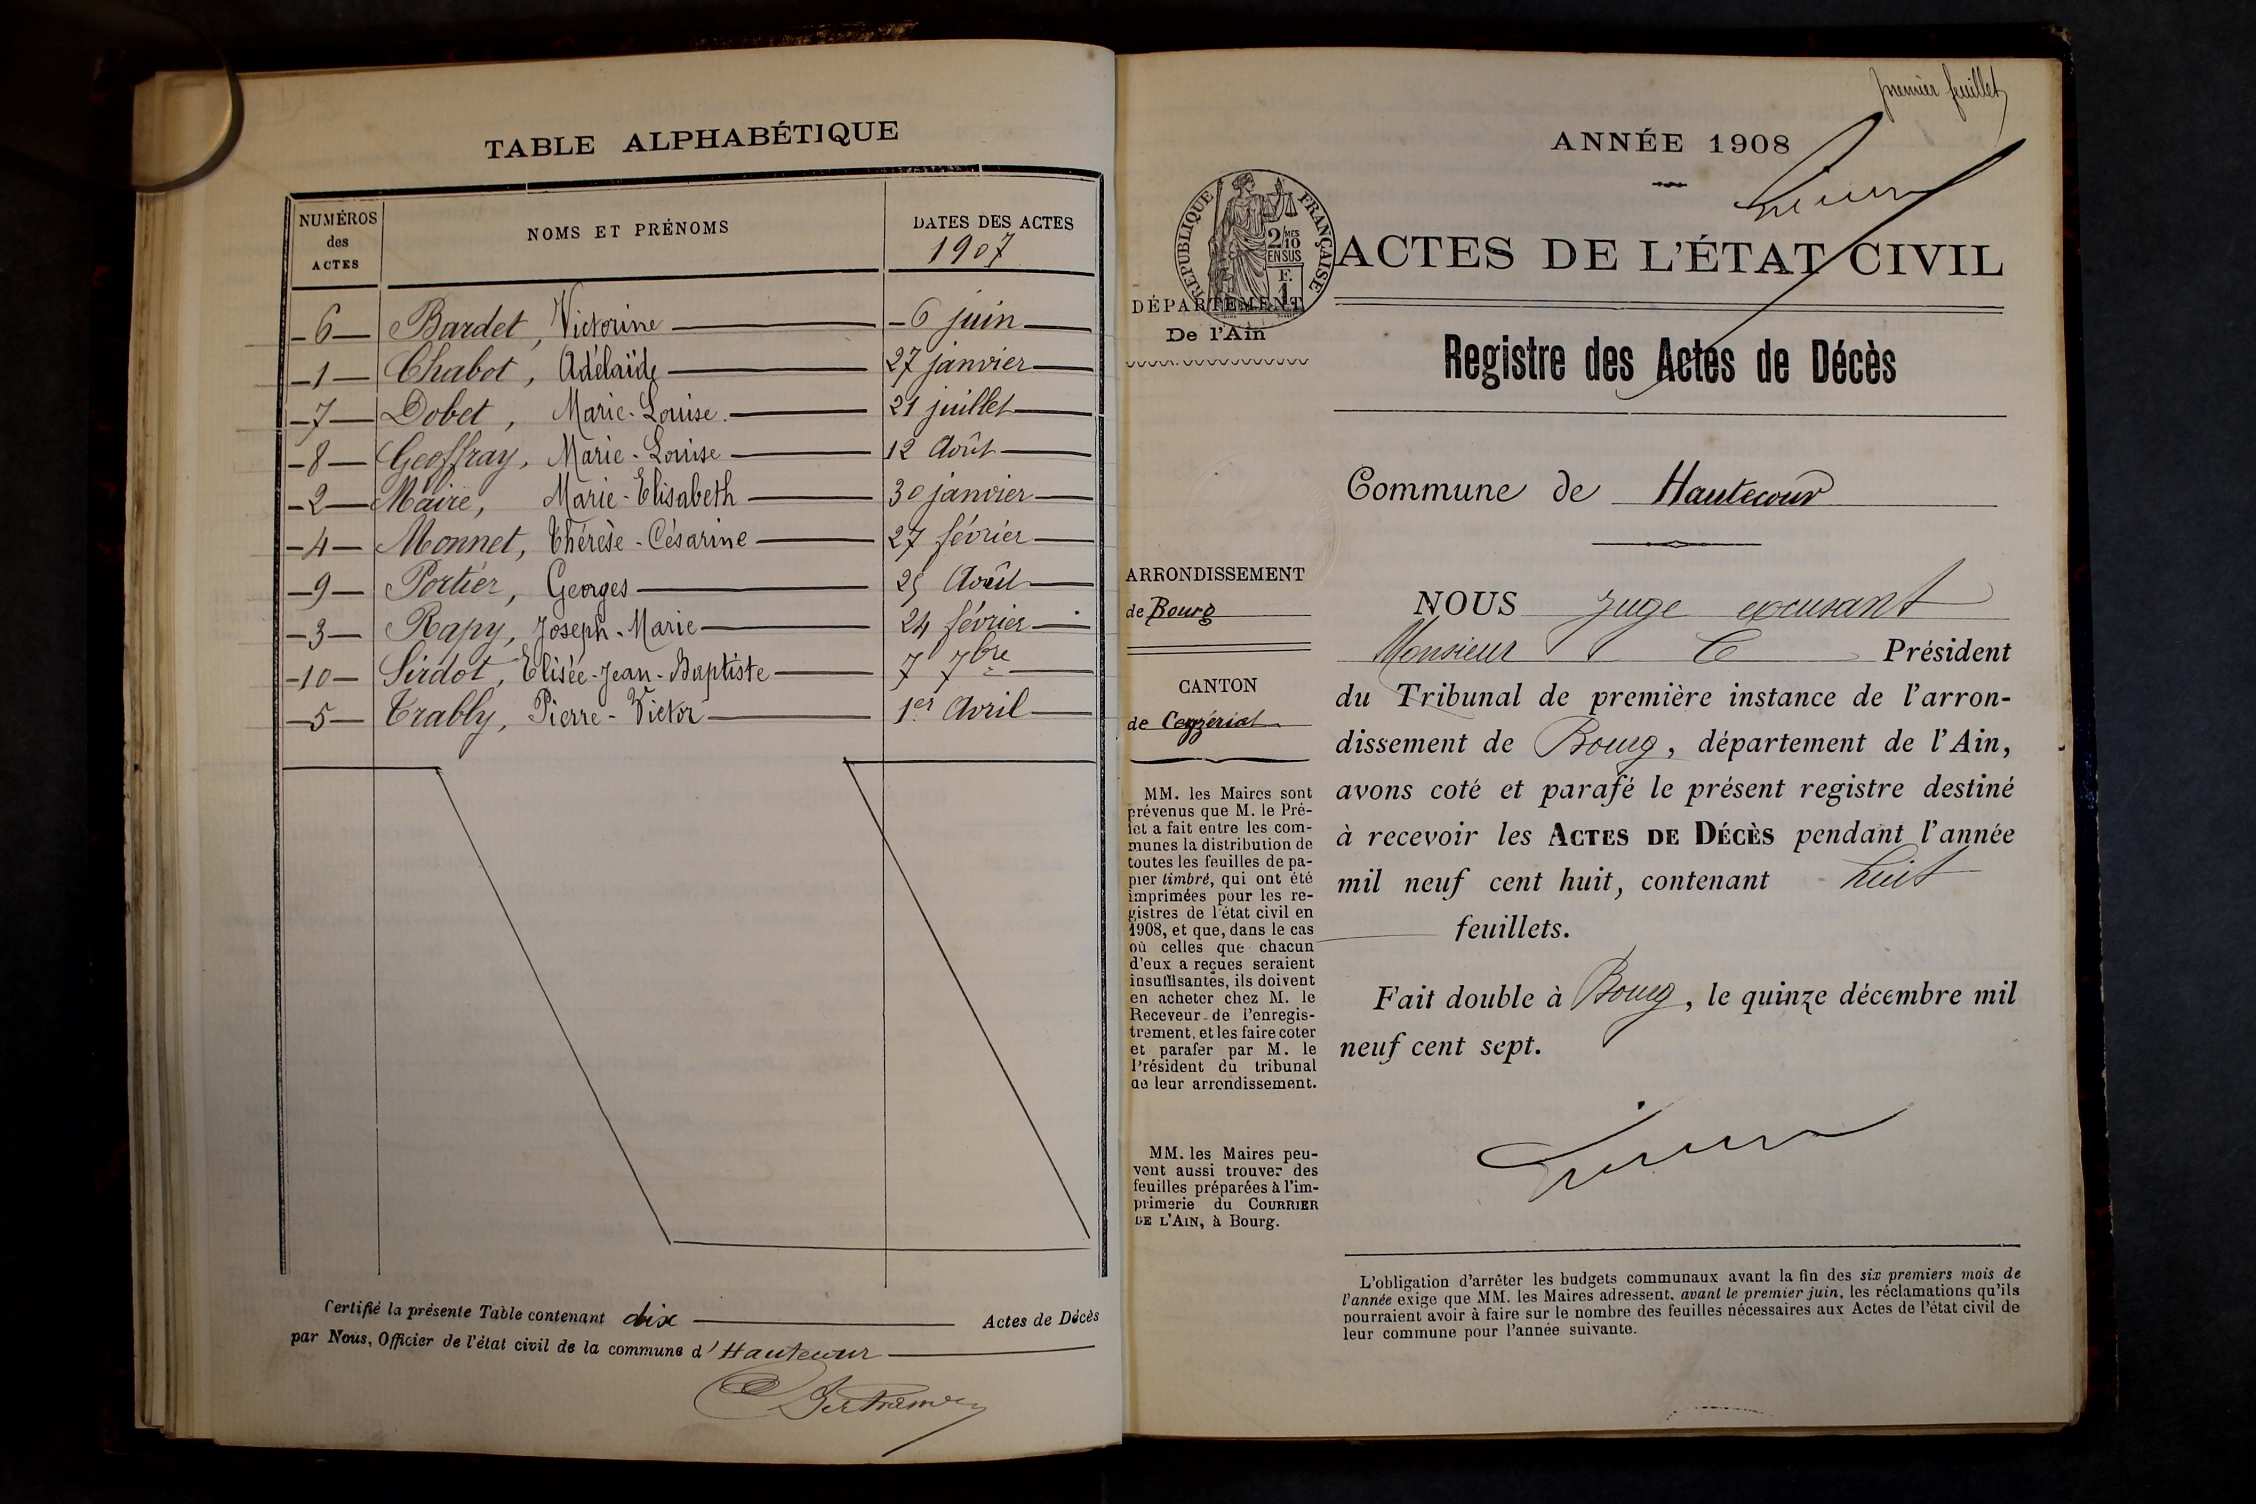 TABLE ALPHABÉTIQUE
NUMÉROS des ACTES
NOMS ET PRÉNOMS
DATES DES ACTES
1907
-6- Bardet, Victorine - 6 juin
-1- Chabot, Adélaïde 27 janvier
-7- Dobet, Marie-Louise. 21 juillet
-8- Geoffray, Marie-Louise 12 Août
-2- Maire, Marie-Elisabeth 30 janvier
-4- Monnet, Thérèse-Césarine 27 février
-9- Portier, Georges 25 Août
-3- Rapy, Joseph-Marie 24 février
-10- Sirdot, Elisée-Jean-Baptiste 7 7bre
-5- Trably, Pierre-Victor 1er Avril
Certifié la présente Table contenant dix Actes de Décès
par Nous, Officier de l'état civil de la commune d'Hautecour
premier feuillet
ANNÉE 1908
RÉPUBLIQUE FRANÇAISE
2/10 MES
EN SUS
F.
1
ACTES DE L'ÉTAT CIVIL
DÉPARTEMENT
De l'Ain
Registre des Actes de Décès
Commune de Hautecour
ARRONDISSEMENT
de Bourg
CANTON
de Ceyzériat
MM. les Maires sont
prévenus que M. le Pré-
fet a fait entre les com-
munes la distribution de
toutes les feuilles de pa-
pier timbré, qui ont été
imprimées pour les re-
gistres de l'état civil en
1908, et que, dans le cas
où celles que chacun
d'eux a reçues seraient
insuffisantes, ils doivent
en acheter chez M. le
Receveur de l'enregis-
trement, et les faire coter
et parafer par M. le
Président du tribunal
de leur arrondissement.
MM. les Maires peu-
vent aussi trouver des
feuilles préparées à l'im-
primerie du COURRIER
DE L'AIN, à Bourg.
NOUS Juge excusant
Monsieur Président
du Tribunal de première instance de l'arron-
dissement de Bourg, département de l'Ain,
avons coté et parafé le présent registre destiné
à recevoir les ACTES DE DÉCÈS pendant l'année
mil neuf cent huit, contenant huit
feuillets.
Fait double à Bourg, le quinze décembre mil
neuf cent sept.
L'obligation d'arrêter les budgets communaux avant la fin des six premiers mois de
l'année exige que MM. les Maires adressent, avant le premier juin, les réclamations qu'ils
pourraient avoir à faire sur le nombre des feuilles nécessaires aux Actes de l'état civil de
leur commune pour l'année suivante.